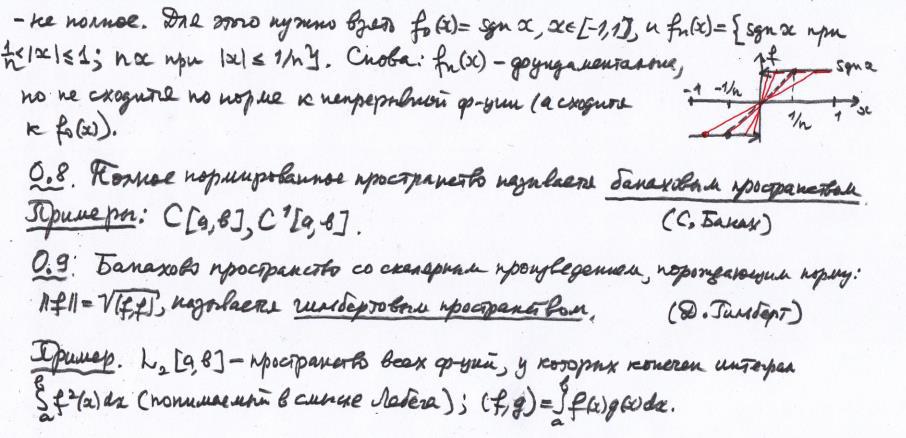 - не полное. Для этого нужно взять f₀(x) = sgn x, x∈[-1,1], и fₙ(x) = {sgn x при
1/n < |x| ≤ 1; nx при |x| ≤ 1/n}. Снова: fₙ(x) - фундаментальна,
но не сходится по норме к непрерывной ф-ции (а сходится
к f₀(x)).
f
sgn x
-1 -1/n
1/n 1 x
0.8. Полное нормированное пространство называется банаховым пространством
Примеры: C[a,b], C¹[a,b].
(С. Банах)
0.9: Банахово пространство со скалярным произведением, порождающим норму:
||f|| = √(f,f), называется гильбертовым пространством.
(Д. Гильберт)
Пример. L₂[a,b] - пространство всех ф-ций, у которых конечен интеграл
∫ₐᵇ f²(x)dx (понимаемый в смысле Лебега); (f,g) = ∫ₐᵇ f(x)g(x)dx.